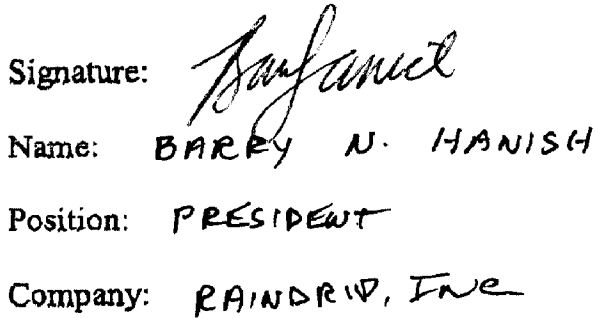 Signature:
Name: BARRY N. HANISH
Position: PRESIDENT
Company: RAINDRIP, Inc